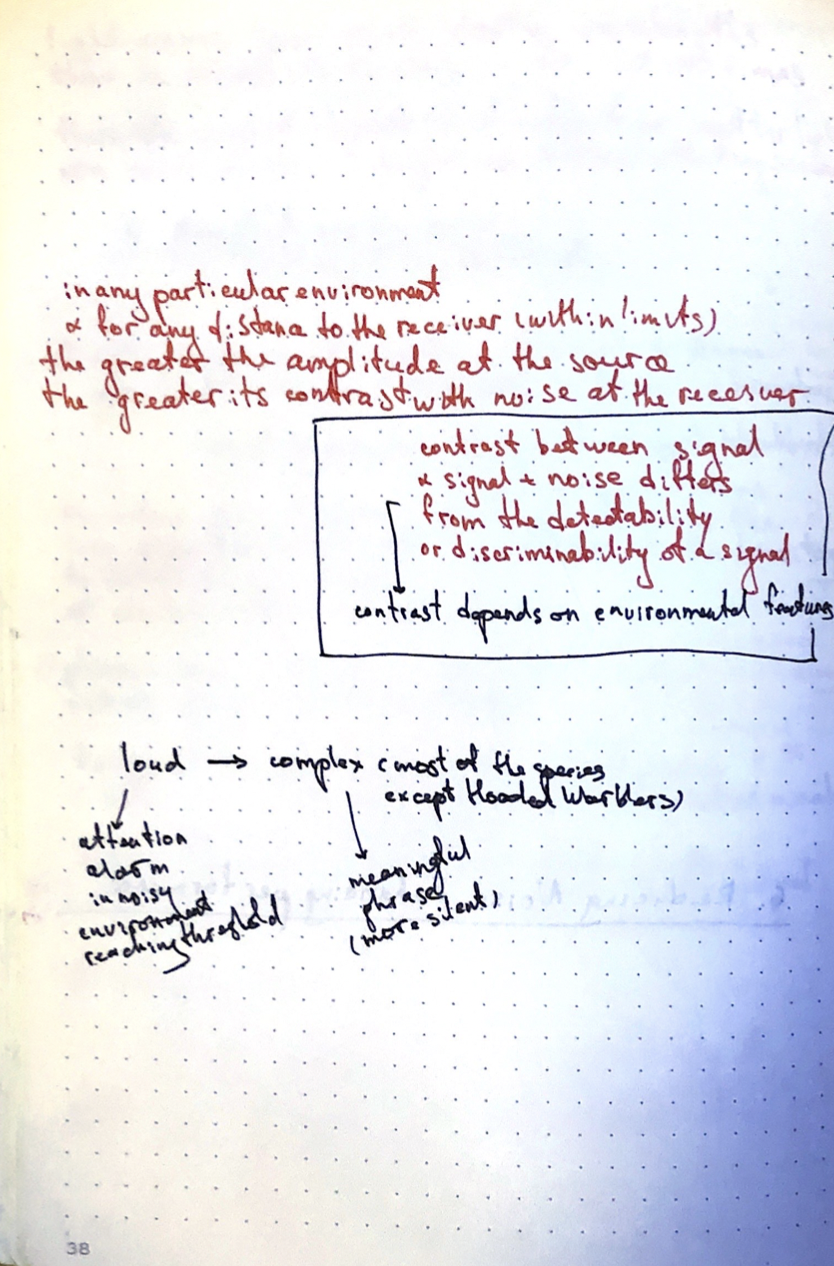 in any particular environment
& for any distance to the receiver (within limits)
the greater the amplitude at the source
the greater its contrast with noise at the receiver
contrast between signal
& signal + noise differs
from the detectability
or discriminability of a signal
contrast depends on environmental features
loud → complex (most of the species
except Hooded Warblers)
attention
alarm
in noisy
environment
reaching threshold
meaningful
phrase
(more silent)
38